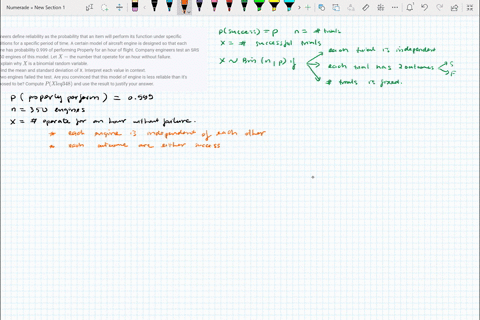 Numerade » New Section 1
neers define reliability as the probability that an item will perform its function under specific
ditions for a specific period of time. A certain model of aircraft engine is designed so that each
ne has probability 0.999 of performing properly for an hour of flight. Company engineers test an SRS
350 engines of this model. Let X = the number that operate for an hour without failure.
xplain why X is a binomial random variable.
nd the mean and standard deviation of X. Interpret each value in context.
engines failed the test. Are you convinced that this model of engine is less reliable than it's
osed to be? Compute and use the result to justify your answer.
P(success) = p n = # trials
X = # successful trials
X ~ Bin(n, p) if
each trial is independent
each trial has 2 outcomes
S
F
# trials is fixed.
P(properly perform) = 0.999
n = 350 engines
X = # operate for an hour without failure.
* each engine is independent of each other
* each outcome are either success